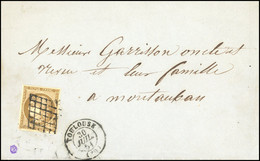 Messieur Garrisson oncle et
neveu et leur famille
a montauban
TOULOUSE
20
JUIL